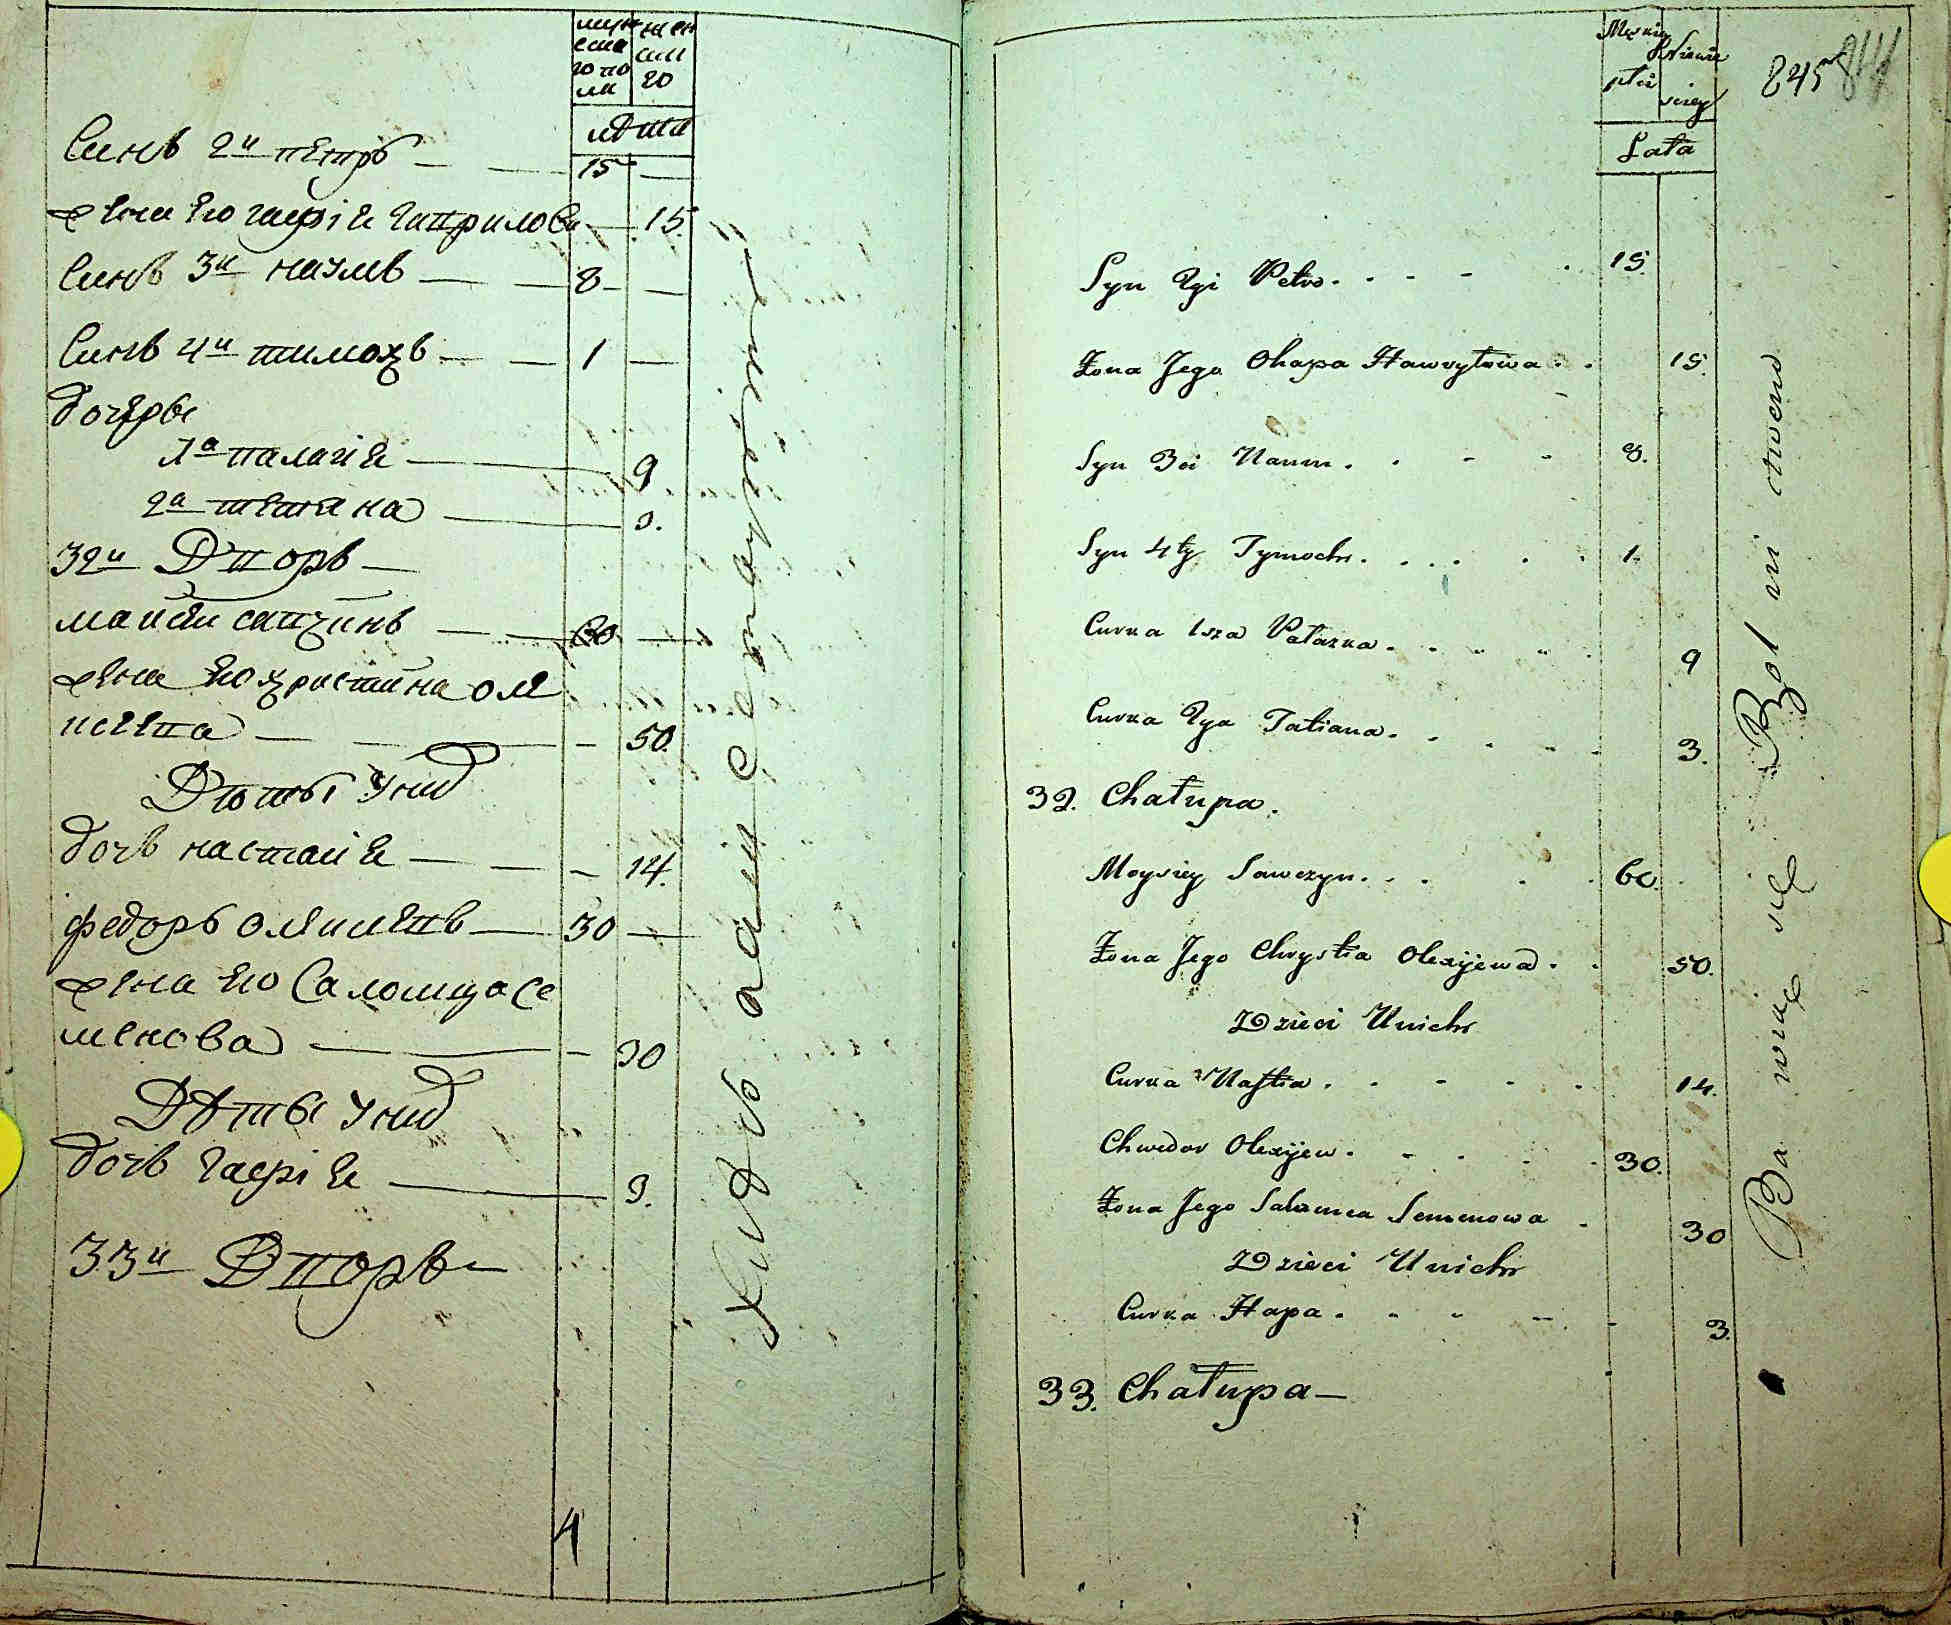 муж жен
еска ски
го по го
ла
лѣта
Синъ 2й петръ — 15 —
жена его гапія гаврилова — 15.
Синъ 3й наумъ — 8 —
Синъ 4й тимохъ — 1 —
дочеры
1а палагія — 9
2а тетяна — 3.
32й Дворъ —
мойсеи савчинъ — 60 —
жена его христина оле
ксеева — 50.
Дѣты Ухъ
дочъ настасія — 14.
федоръ олексиевъ — 30 —
жена его Саломия Се
менова — 30
Дѣты Ухъ
дочъ гапія — 3.
33й Дворъ —
4
Męzkiey Niewie
płci sciey
Lata
245
Syn 2gi Petro. 15.
Żona Jego Ohapa Hawryłowa. 15.
Syn 3ci Naum. 8.
Syn 4ty Tymoch. 1.
Curka 1sza Pałazka. 9
Curka 2ga Tatiana. 3.
32. Chałupa.
Moysiey Sawczyn. 60.
Żona Jego Chrystia Olexijewa. 50.
Dzieci U nich
Curka Nastia. 14.
Chwedor Olexijew. 30.
Żona Jego Salamea Semenowa 30
Dzieci U nich
Curka Hapa. 3.
33. Chałupa —